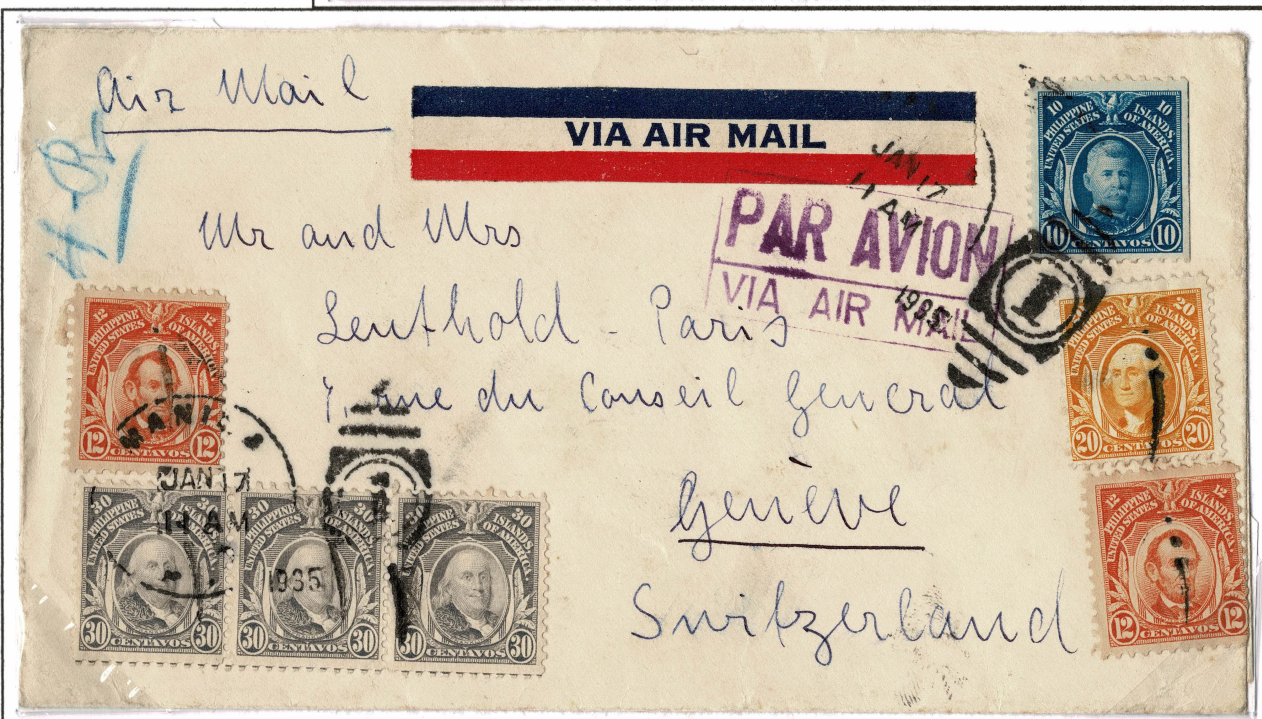 Air Mail
VIA AIR MAIL
JAN 17
11 AM
1935
PAR AVION
VIA AIR MAIL
1
Mr and Mrs
Leuthold - Paris
7, rue du Conseil General
Genève
Switzerland
10 10
PHILIPPINE ISLANDS
UNITED STATES OF AMERICA
10 CENTAVOS 10
20
PHILIPPINE ISLANDS
UNITED STATES OF AMERICA
20 CENTAVOS 20
12 12
PHILIPPINE ISLANDS
UNITED STATES OF AMERICA
12 CENTAVOS 12
12 12
PHILIPPINE ISLANDS
UNITED STATES OF AMERICA
12 CENTAVOS 12
MANILA
JAN 17
11 AM
1935
30 30
PHILIPPINE ISLANDS
UNITED STATES OF AMERICA
30 CENTAVOS 30
30 30
PHILIPPINE ISLANDS
UNITED STATES OF AMERICA
30 CENTAVOS 30
30 30
PHILIPPINE ISLANDS
UNITED STATES OF AMERICA
30 CENTAVOS 30